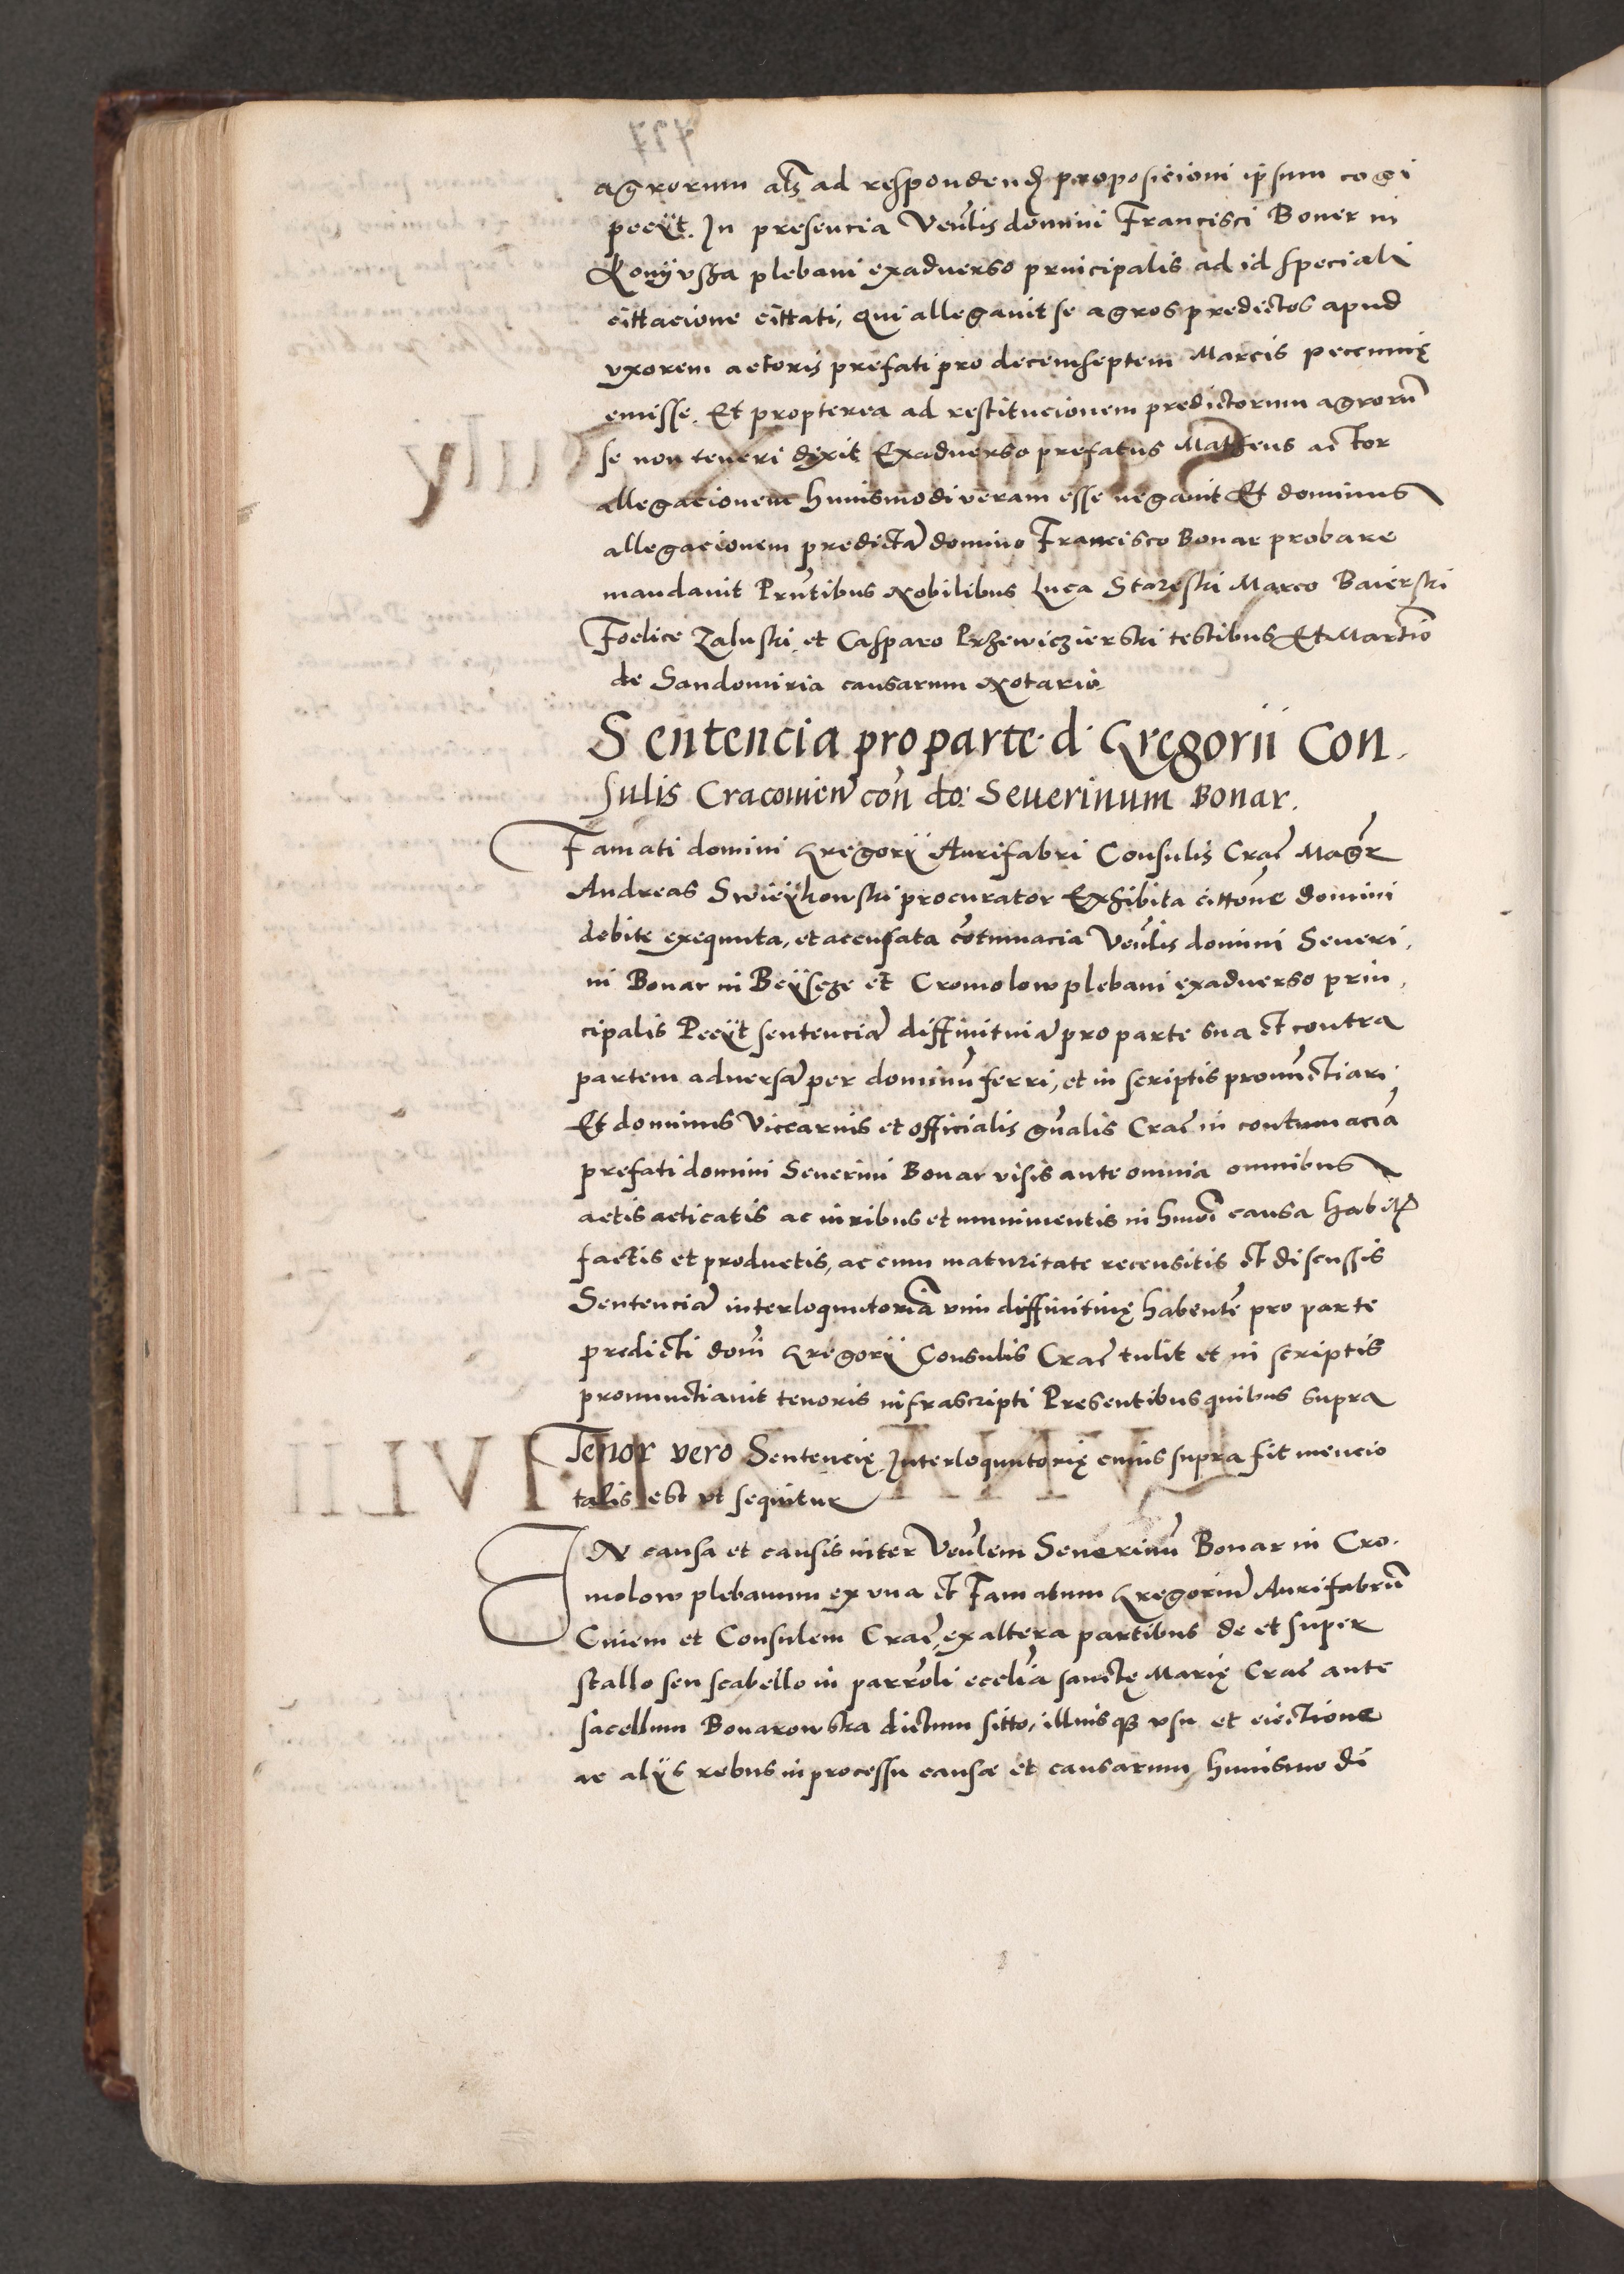 agrorum als ad respondend proposicioni ipsum cogi
peeÿt. In presencia Venlis domini Francisci Boner in
Konÿvsza plebani exadverso principalis ad id speciali
cittacione cittati, qui allegavit se agros predictos apud
vxorem actoris prefati pro decemseptem Marcis pecunię
emisse. Et propterea ad restitucionem predictorum agrorū
se non teneri dixit Exadverso prefatus Mattheus actor
allegacionem huiusmodi veram esse negavit Et dominus
allegacionem predictā domino Francisco Bonar probare
mandavit Prntibus Nobilibus Luca Stareski Marco Baierski
Foelice Zaluski et Casparo Przewiczierski testibus Et Martino
de Sandomiria causarum Notario
Sentencia pro parte d. Gregorii Con
sulis Cracowien con do: Severinum Bonar.
Famati domini Gregorÿ Aurifabri Consulis Crac Magr
Andreas Swieÿkowski procurator Exhibita cittone domini
debite exequuta, et accusata cōtumacia Venlis domini Severi,
ni Bonar in Beÿscze et Cromolow plebani exadverso prin,
cipalis Peeÿt sentenciā diffinitivā pro parte sua et contra
partem adversā per dominū ferri, et in scriptis pronūctiari
Et dominus Vicearius et officialis gnalis Crac in contumaciā
prefati domini Severini Bonar visis ante omnia omnibus
actis acticatis ac iuribus et munimentis in hmōi causa habitis
factis et productis, ac cum maturitate recensitis et discussis
Sentenciā interloquutoriā vim diffinitivę habentē pro parte
predicti domi Gregorÿ Consulis Crac tulit et in scriptis
pronunctiavit tenoris infrascripti Presentibus quibus supra
Tenor vero Sentencię Interloquutorię cuius supra fit mencio
talis est vt sequitur
IN causa et causis inter Venlem Severinū Bonar in Cro.
molow plebanum ex vna et Famatum Gregoriū Aurifabrū
Civem et Consulem Crac, ex altera partibus de et super
stallo seu scabello in parroli ecclia sanctę Marię Crac ante
sacellum Bonarowska dictum sitto, illiusq3 vsu et eiectione
ac alÿs rebus in processu causæ et causarum huiusmodi